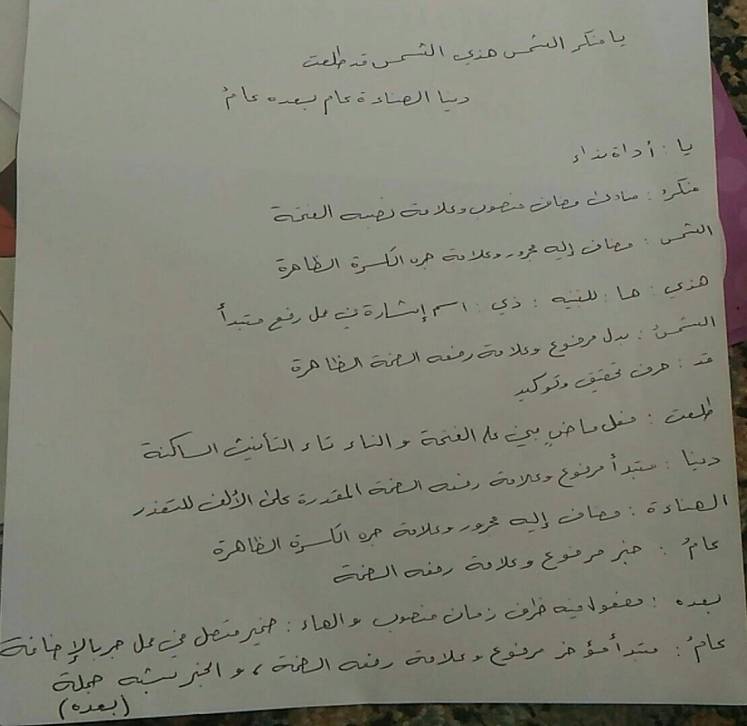 يا منكر الشمس هذي الشمس قد طلعت
دنيا الهناءة عام بعده عامُ
يا : أداة نداء
منكرَ : منادى مضاف منصوب وعلامة نصبه الفتحة
الشمس : مضاف إليه مجرور وعلامة جره الكسرة الظاهرة
هذي : ها : للتنبيه ؛ ذي : اسم إشارة في محل رفع مبتدأ
الشمسُ : بدل مرفوع وعلامة رفعه الضمة الظاهرة
قد : حرف تحقيق وتوكيد
طلعت : فعل ماضٍ مبني على الفتحة والتاء تاء التأنيث الساكنة
دنيا : مبتدأ مرفوع وعلامة رفعه الضمة المقدرة على الألف للتعذر
الهناءة : مضاف إليه مجرور وعلامة جره الكسرة الظاهرة
عامُ : خبر مرفوع وعلامة رفعه الضمة
بعده : مفعول فيه ظرف زمان منصوب والهاء : ضمير متصل في محل جر بالإضافة
عامُ : مبتدأ مؤخر مرفوع وعلامة رفعه الضمة ، والخبر شبه جملة
(بعده)